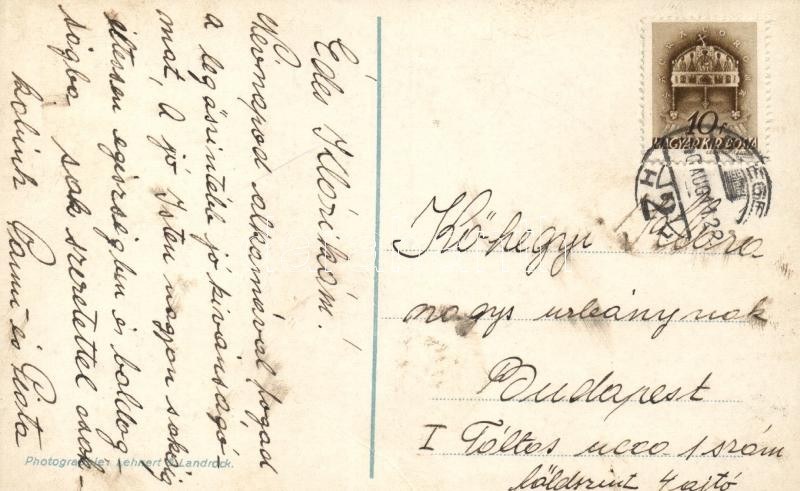 Édes Klórikám!
Névnapod alkalmával fogad
a legőszintébb jó kívánságó-
mat, A jó Isten nagyon sokáig
éltessen egészségben és boldog
ságba sok szeretettel csok-
kolunk Panni és Piata
Photographie: Lehnert & Landrock.
10 f
MAGYAR KIR. POSTA
Kőhegyi Klóra
nagys urleánynak
Budapest
I Táltos ucca 1 szám
földszint 4 ajtó